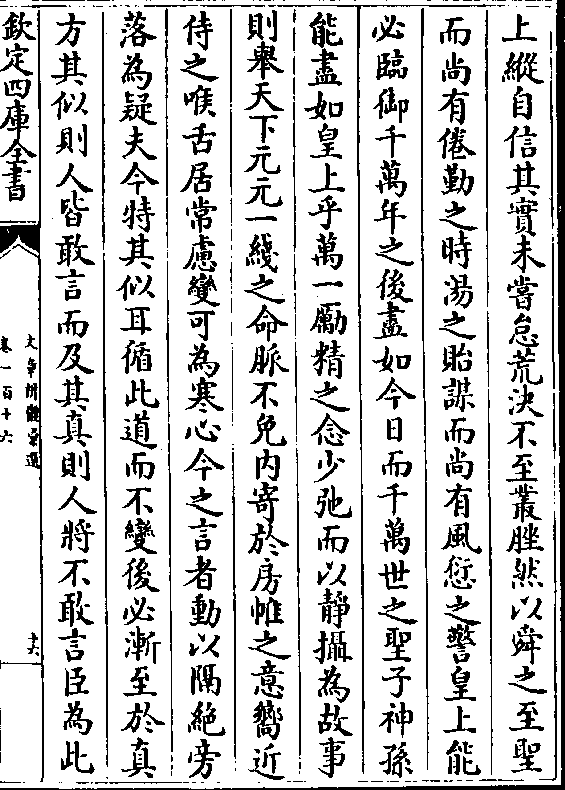 上縱自信其實未嘗怠荒決不至叢脞然以舜之至聖
而尚有倦勤之時湯之貽謀而尚有風愆之警皇上能
必臨御千萬年之後盡如今日而千萬世之聖子神孫
能盡如皇上乎萬一勵精之念少弛而以靜攝為故事
則舉天下元元一綫之命脈不免内寄於房帷之意嚮近
侍之喉舌居常慮變可為寒心今之言者動以隔絶旁
落為疑夫今特其似耳循此道而不變後必漸至於真
方其似則人皆敢言而及其真則人將不敢言臣為此
欽定四庫全書
文章辨體彚選
卷一百十六
十六